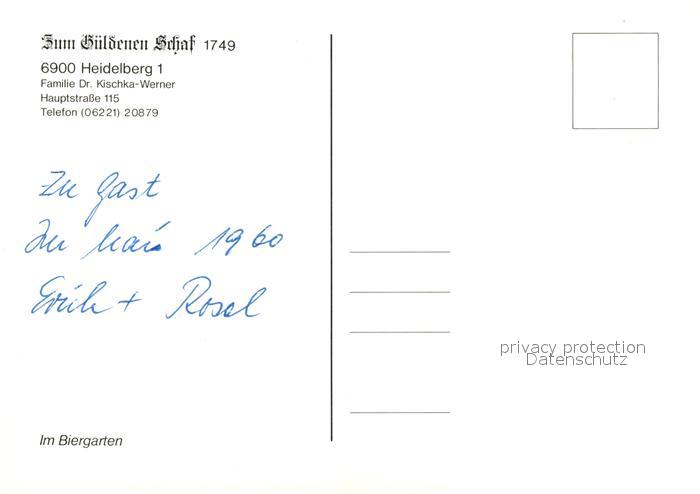 Zum Güldenen Schaf 1749
6900 Heidelberg 1
Familie Dr. Kischka-Werner
Hauptstraße 115
Telefon (06221) 20879
Zu Gast
Im Mai 1960
Erich + Rosel
Im Biergarten
privacy protection
Datenschutz